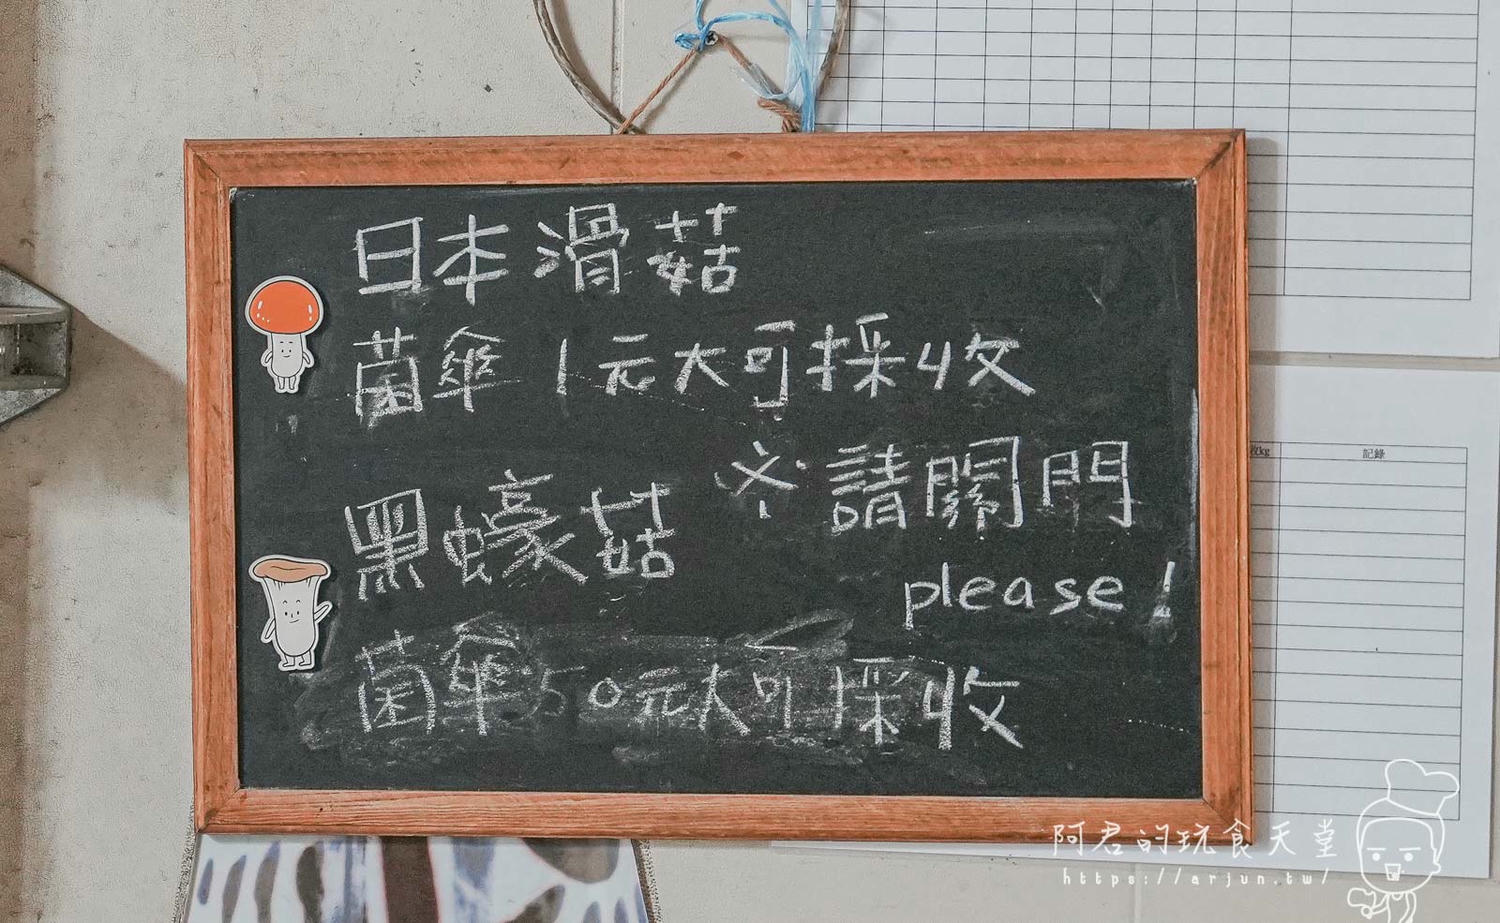 日本滑菇
菌傘1元大可採收
請關門
please!
黑蠔菇
菌傘50元大可採收
記錄
阿君的玩食天堂
https://arjun.tw/